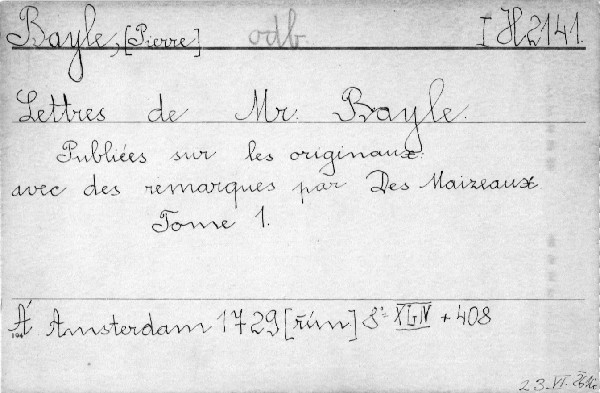 Bayle, [Pierre] odb. I H 2141.
Lettres de Mr. Bayle.
Publiées sur les originaux:
avec des remarques par Des Maizeaux.
Tome 1.
À Amsterdam 1729 [řím] 8° + 408
23. VI.